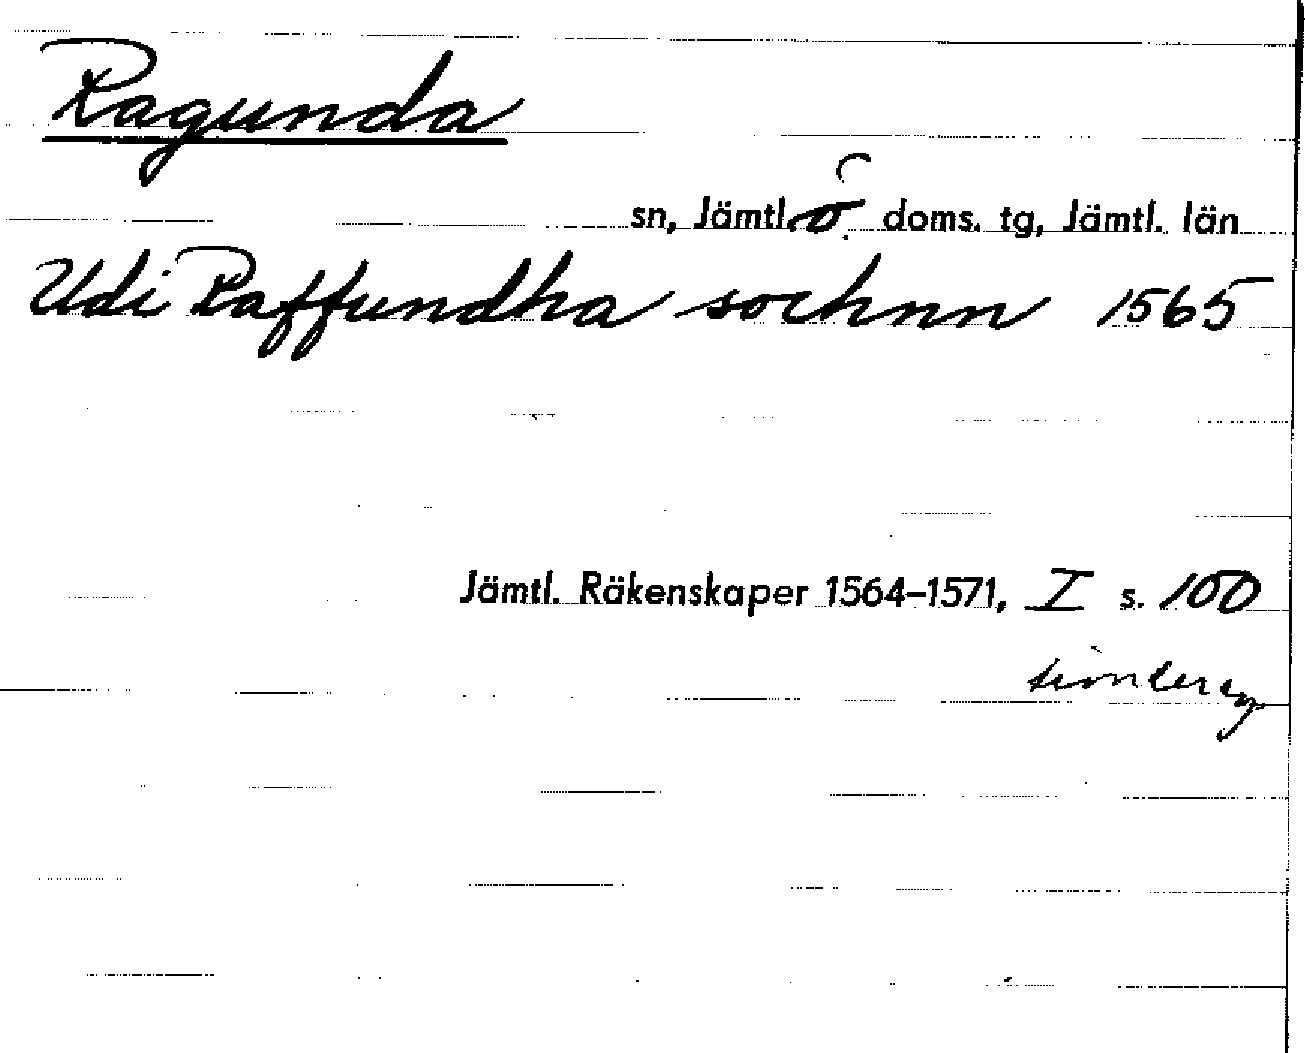 Ragunda
sn, Jämtl. ö doms. tg, Jämtl. län
Udi Raffundha sochnn 1565
Jämtl. Räkenskaper 1564–1571, I s. 100